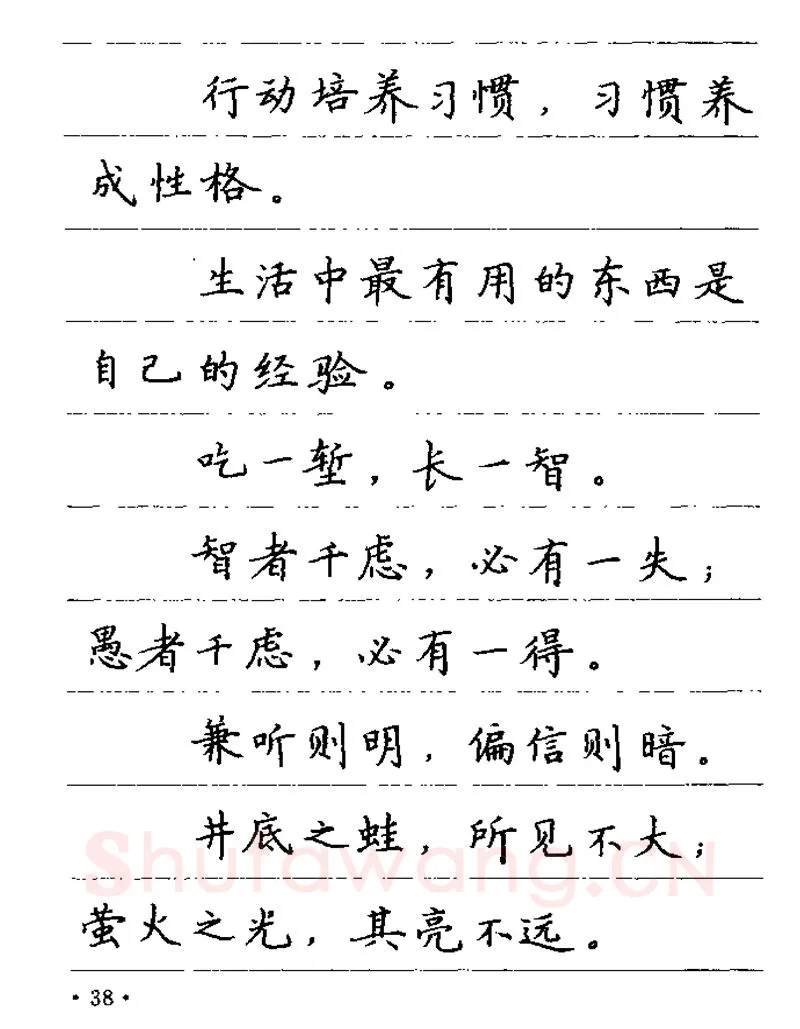 行动培养习惯，习惯养
成性格。
生活中最有用的东西是
自己的经验。
吃一堑，长一智。
智者千虑，必有一失；
愚者千虑，必有一得。
兼听则明，偏信则暗。
井底之蛙，所见不大；
萤火之光，其亮不远。
Shufawang.CN
·38·